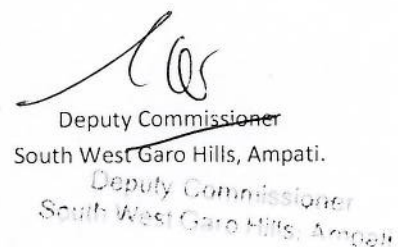 Deputy Commissioner
South West Garo Hills, Ampati.
Deputy Commissioner
South West Garo Hills, Ampati